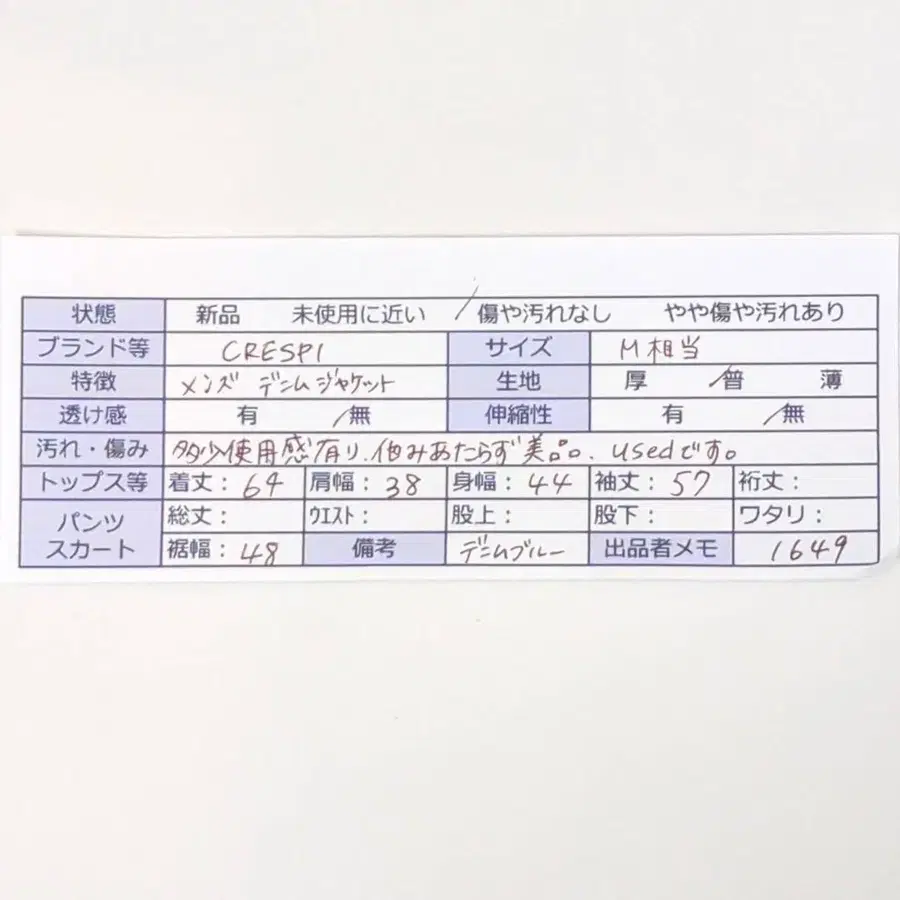 状態 新品 未使用に近い /傷や汚れなし やや傷や汚れあり
ブランド等 CRESPI サイズ M相当
特徴 メンズ デニムジャケット 生地 厚 /普 薄
透け感 有 /無 伸縮性 有 /無
汚れ・傷み 多少使用感有り、他みあたらず美品。usedです。
トップス等 着丈: 64 肩幅: 38 身幅: 44 袖丈: 57 裄丈:
パンツ スカート 総丈: ウエスト: 股上: 股下: ワタリ:
裾幅: 48 備考 デニムブルー 出品者メモ 1649